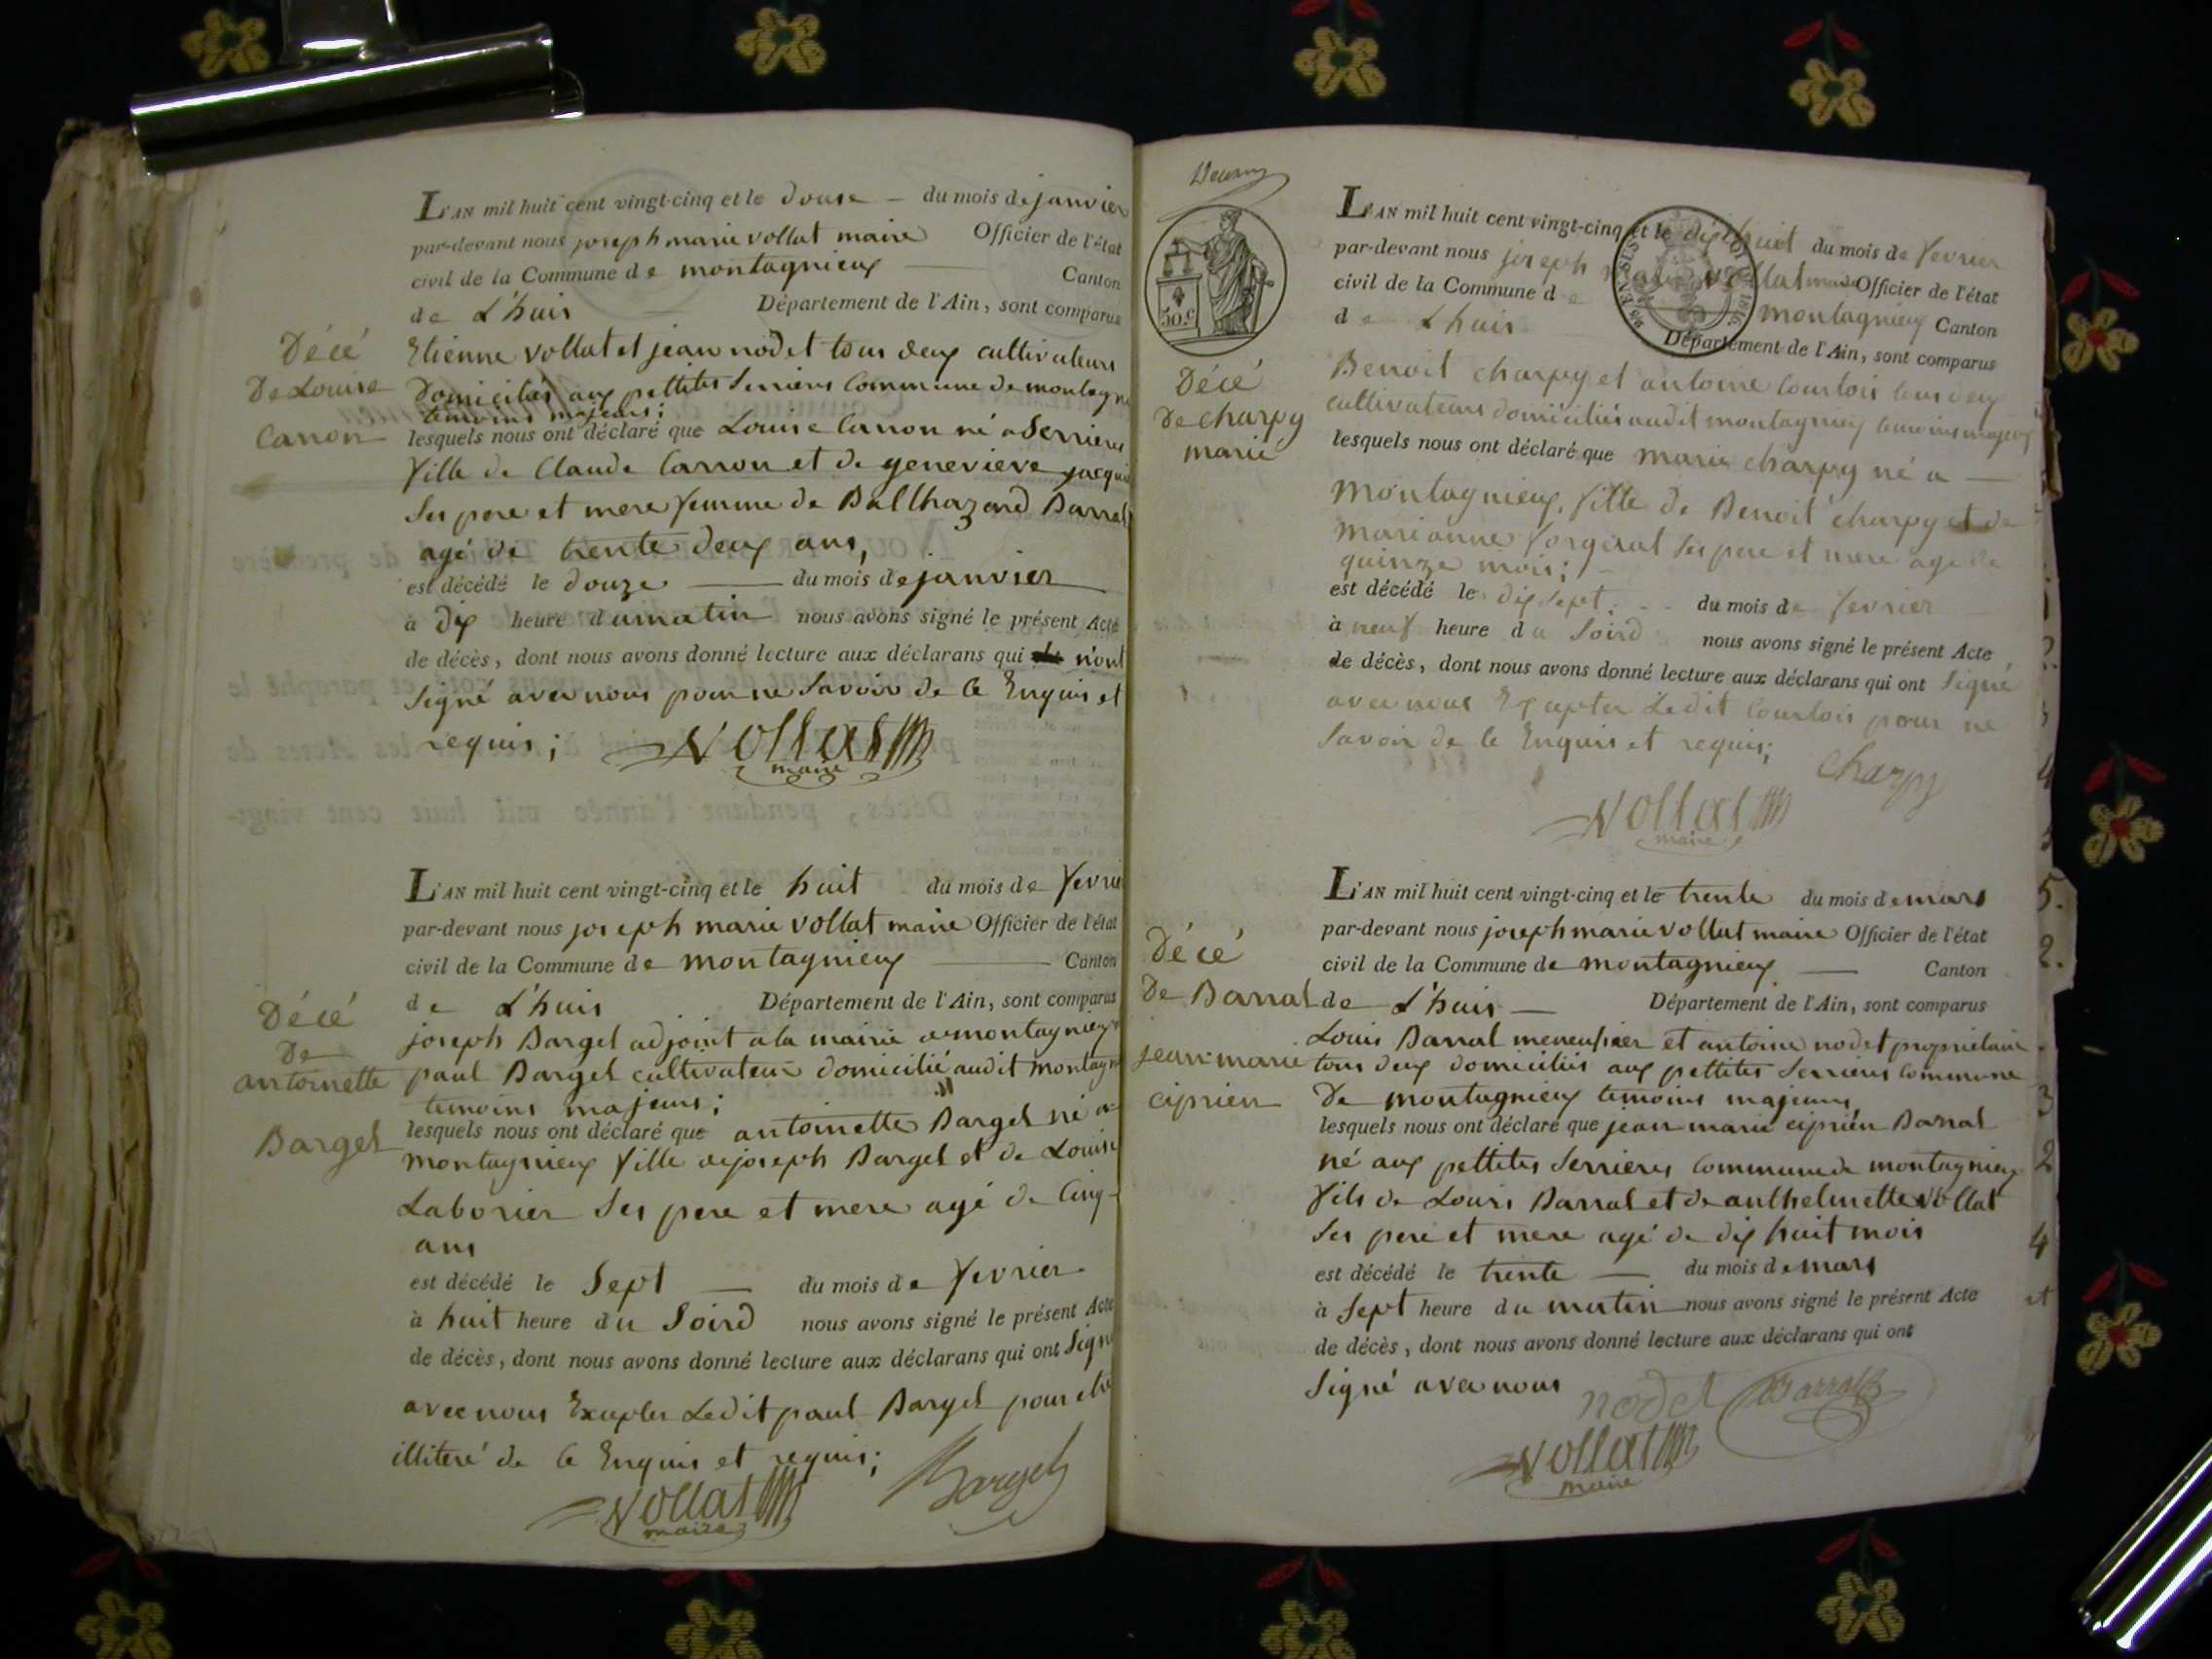 L'AN mil huit cent vingt-cinq et le douse du mois de janvier
par-devant nous joseph marie vollat maire Officier de l'état
civil de la Commune de montagnieux Canton
de L'huis Département de l'Ain, sont comparus
Décé
De Louise
Canon
Etienne vollat et jean nodet tous deux cultivateurs
Domiciliés aux pettites Serrieres Commune de montagn
temoins majeurs;
lesquels nous ont déclaré que Louise Canon né a Serrieres
fille de Claude Carron et de genevieve jacqui
Ses pere et mere femme de Balthazard Barral
agé de trente deux ans,
est décédé le douze du mois de janvier
à dix heure du matin nous avons signé le présent Acte
de décès, dont nous avons donné lecture aux déclarans qui n'ont
Signé avec nous pour ne Savoir de ce Enquis et
requis;
Vollat
maire
L'AN mil huit cent vingt-cinq et le huit du mois de fevrie
par-devant nous joseph marie vollat maire Officier de l'état
civil de la Commune de montagnieux Canton
de L'huis Département de l'Ain, sont comparus
Décé
De
antoinette
Barget
joseph Barget adjoint a la mairie de montagnieux
paul Barget cultivateur domicilié audit montagn
temoins majeurs;
lesquels nous ont déclaré que antoinette Barget né a
montagnieux fille de joseph Barget et de Louise
Laborier Ses pere et mere agé de Cinq
ans
est décédé le Sept du mois de fevrier
à huit heure du Soird nous avons signé le présent Acte
de décès, dont nous avons donné lecture aux déclarans qui ont Signé
avec nous Exapter Ledit paul Barget pour etre
illiteré de ce Enquis et requis;
Vollat
maire
Barget
50.c
L'AN mil huit cent vingt-cinq et le dix huit du mois de fevrier
par-devant nous joseph marie vollat maire Officier de l'état
civil de la Commune de montagnieux Canton
de L'huis Département de l'Ain, sont comparus
Décé
De Charpy
marie
Benoit charpy et antoine Courtois tous deux
cultivateurs domiciliés audit montagnieux temoins majeurs
lesquels nous ont déclaré que marie charpy né a
montagnieux, fille de Benoit charpy et de
marianne forgerat Ses pere et mere agé de
quinze mois;
est décédé le dix Sept du mois de fevrier
à neuf heure du Soird nous avons signé le présent Acte
de décès, dont nous avons donné lecture aux déclarans qui ont Signé
avec nous Exapter Ledit Courtois pour ne
Savoir de ce Enquis et requis;
Charpy
Vollat
maire
L'AN mil huit cent vingt-cinq et le trente du mois de mars
par-devant nous joseph marie vollat maire Officier de l'état
civil de la Commune de montagnieux Canton
de L'huis Département de l'Ain, sont comparus
Décé
De Barral
jean marie
ciprien
Louis Barral meneusier et antoine nodet proprietaire
tous deux domiciliés aux pettites Serrieres Commune
De montagnieux temoins majeurs
lesquels nous ont déclaré que jean marie ciprien Barral
né aux pettites Serrieres Commune de montagnieux
fils de Louis Barral et de anthelmette vollat
Ses pere et mere agé de dix huit mois
est décédé le trente du mois de mars
à Sept heure du matin nous avons signé le présent Acte
de décès, dont nous avons donné lecture aux déclarans qui ont
Signé avec nous
nodet
Barral
Vollat
maire